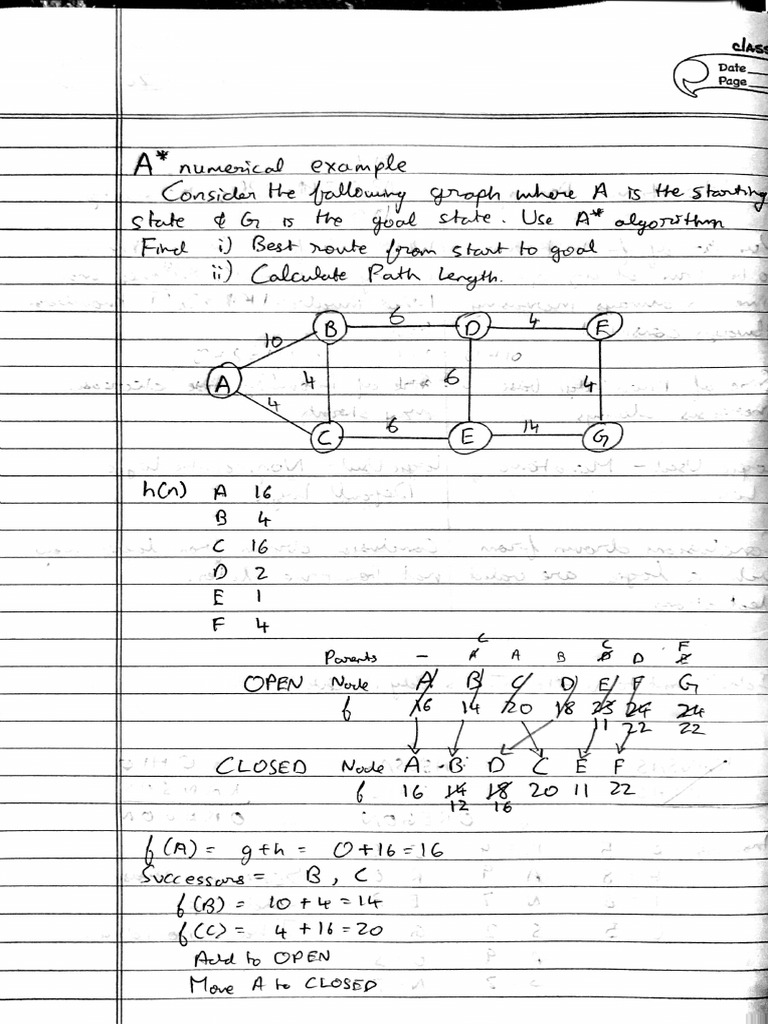 class
Date
Page
A* numerical example
Consider the following graph where A is the starting
state & G is the goal state. Use A* algorithm
Find i) Best route from start to goal
ii) Calculate Path Length.
B 6 D 4 F
10
A 4 6 4
4
C 6 E 14 G
h(n) A 16
B 4
C 16
D 2
E 1
F 4
C C F
Parents - A A B D D E
OPEN Node A B C D E F G
f 16 14 20 18 23 24 24
11 22 22
CLOSED Node A B D C E F
f 16 14 18 20 11 22
12 16
f(A) = g+h = 0+16 = 16
Successors = B, C
f(B) = 10+4 = 14
f(C) = 4+16 = 20
Add to OPEN
Move A to CLOSED